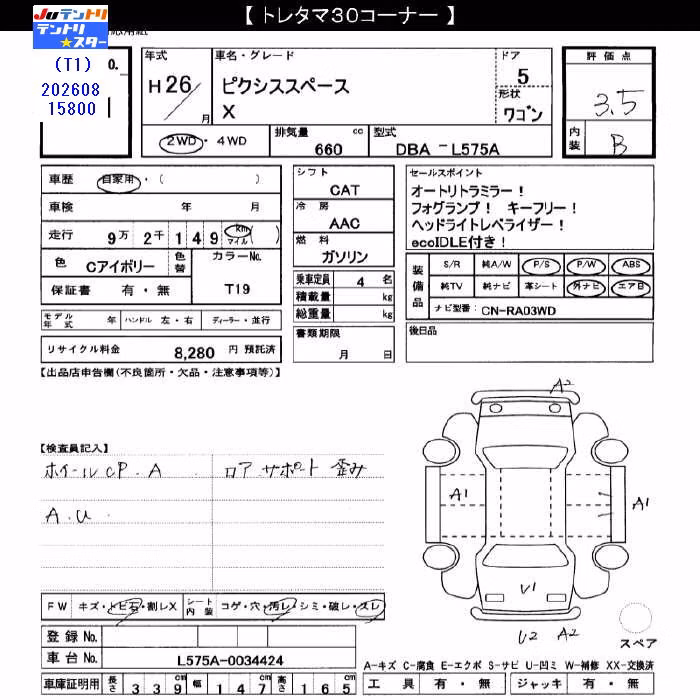 【 トレタマ30コーナー 】
JUテントリ
テントリ
★スター
(T1)
202608
15800
0.
年式
H 26 / 月
車名・グレード
ピクシススペース
X
ドア
5
形状
ワゴン
評価点
3.5
内装
B
2WD・4WD
排気量 660 cc
型式 DBA -L575A
車歴 自家用・( )
車検 年 月
走行 9万 2千 1 4 9 km マイル ( )
色 Cアイボリー
色替
カラーNo. T19
保証書 有・無
モデル年式 年
ハンドル 左・右
ディーラー・並行
リサイクル料金 8,280 円 預託済
シフト
CAT
冷房
AAC
燃料
ガソリン
乗車定員 4 名
積載量 kg
総重量 kg
書類期限
月 日
セールスポイント
オートリトラミラー!
フォグランプ! キーフリー!
ヘッドライトレベライザー!
ecoIDLE付き!
装備品
S/R 純A/W P/S P/W ABS
純TV 純ナビ 革シート 外ナビ エアB
ナビ型番 CN-RA03WD
後日品
【出品店申告欄(不良箇所・欠品・注意事項等)】
【検査員記入】
ホイールCP.A. ロアサポート歪み
A.U
A2
A1
A1
U1
U2 A2
スペア
FW キズ・トビ石・割レX
シート内装 コゲ・穴・汚レ・シミ・破レ・スレ
登録 No.
車台 No. L575A-0034424
車庫証明用 長さ 3 3 9 cm 幅 1 4 7 cm 高さ 1 6 5 cm
A-キズ C-腐食 E-エクボ S-サビ U-凹ミ W-補修 XX-交換済
工具 有・無 ジャッキ 有・無